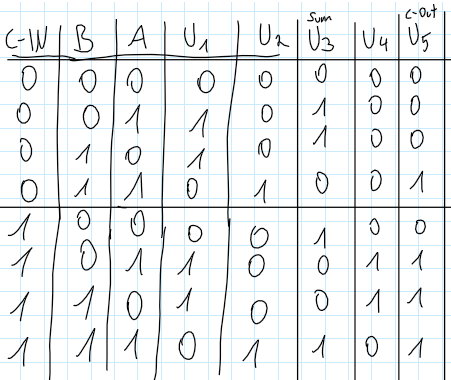 C-IN B A U1 U2 Sum U3 U4 C-Out U5
0 0 0 0 0 0 0 0
0 0 1 1 0 1 0 0
0 1 0 1 0 1 0 0
0 1 1 0 1 0 0 1
1 0 0 0 0 1 0 0
1 0 1 1 0 0 1 1
1 1 0 1 0 0 1 1
1 1 1 0 1 1 0 1